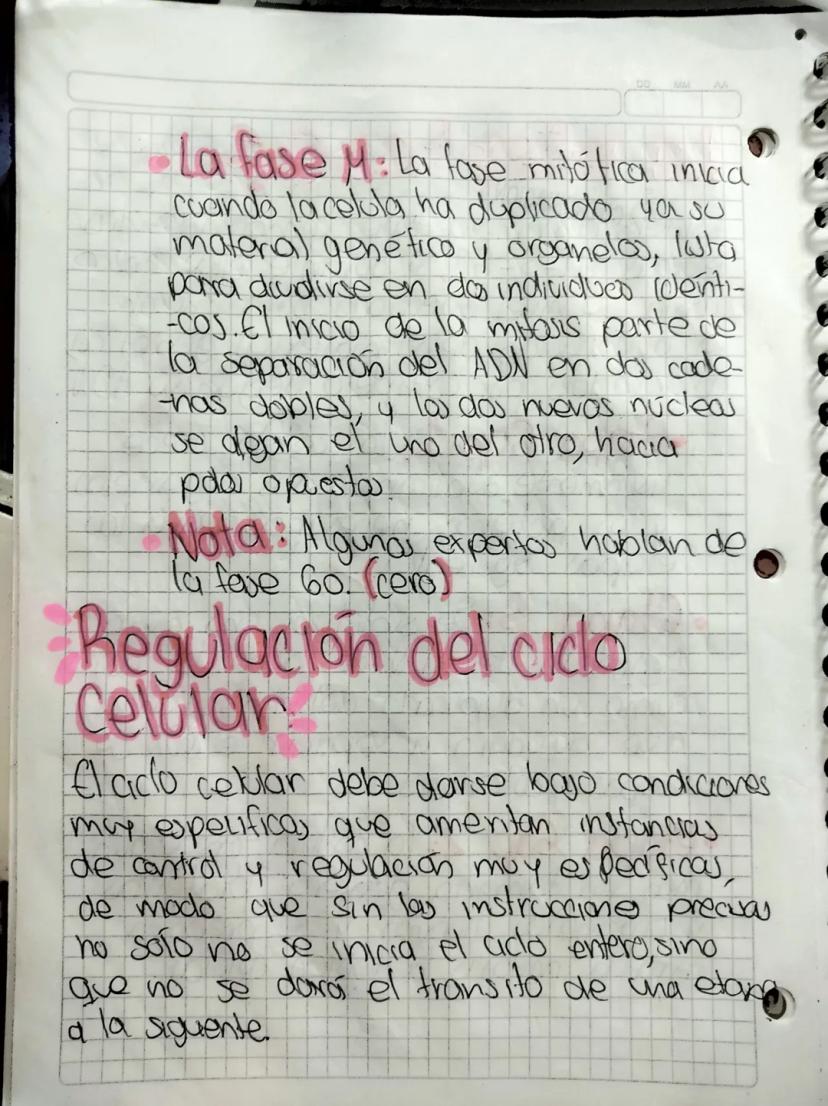 DD MM AA
• La fase M: La fase mitótica inicia
cuando la celula ha duplicado ya su
material genético y organelos, lista
para dividirse en dos individuos identi-
-cos. El inicio de la mitosis parte de
la separación del ADN en dos cade-
-nas dobles, y los dos nuevos núcleos
se alejan el uno del otro, hacia
polos opuestos.
• Nota: Algunos expertos hablan de
la fase G0. (cero)
Regulación del ciclo
celular
El ciclo celular debe darse bajo condiciones
muy especificas que ameritan instancias
de control y regulación muy específicas,
de modo que sin las instrucciones precisas
no sólo no se inicia el ciclo entero, sino
que no se dará el transito de una etapa
a la siguente.